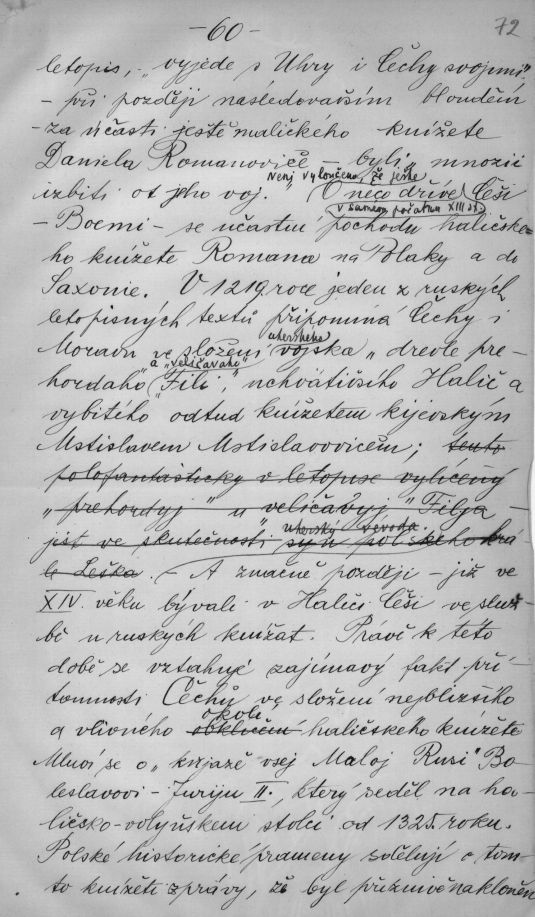 - 60 -
72
letopis, - „vyjede s Uhry i Čechy svojimi"
- při později následovavším bloudění
- za účasti ještě maličkého knížete
Daniela Romanoviče - byli „mnozii
izbiti ot jeho voj." Není vyloučeno, že ještě
(O něco dříve) Češi
v samém počátku XIII st.
- Boemi - se účastní pochodu haličske-
ho knížete Romana na Polaky a do
Saxonie. V 1219 roce jeden z ruských
letopisných textů připomíná Čechy i
Moravu ve složení uherského vojska „drevle pre-
hordaho" a „veličavaho" Fili, uchvátičšího Halič a
vybitého odtud knížetem kijevským
Mstislavem Mstislavovičem; tento
polofantasticky v letopise vylíčený
„prehordyj" a „veličavyj" Filja -
jist ve skutečnosti uherský vévoda. syn polského krá-
le Leška. - A značně později - již ve
XIV. věku bývali v Haliči Češi ve služ-
bě u ruských knížat. Právě k této
době se vztahuje zajímavý fakt pří-
tomnosti Čechů ve složení nejbližšího
a vlivného okolí obklíčení haličského knížete
Mluví se o „knjazě vsej Maloj Rusi" Bo-
leslavovi - Juriju II., který seděl na ha-
ličsko-volyňském stolci od 1325. roku.
Polské historické prameny sdělují o tom-
to knížeti zprávy, že byl příznivě nakloněn